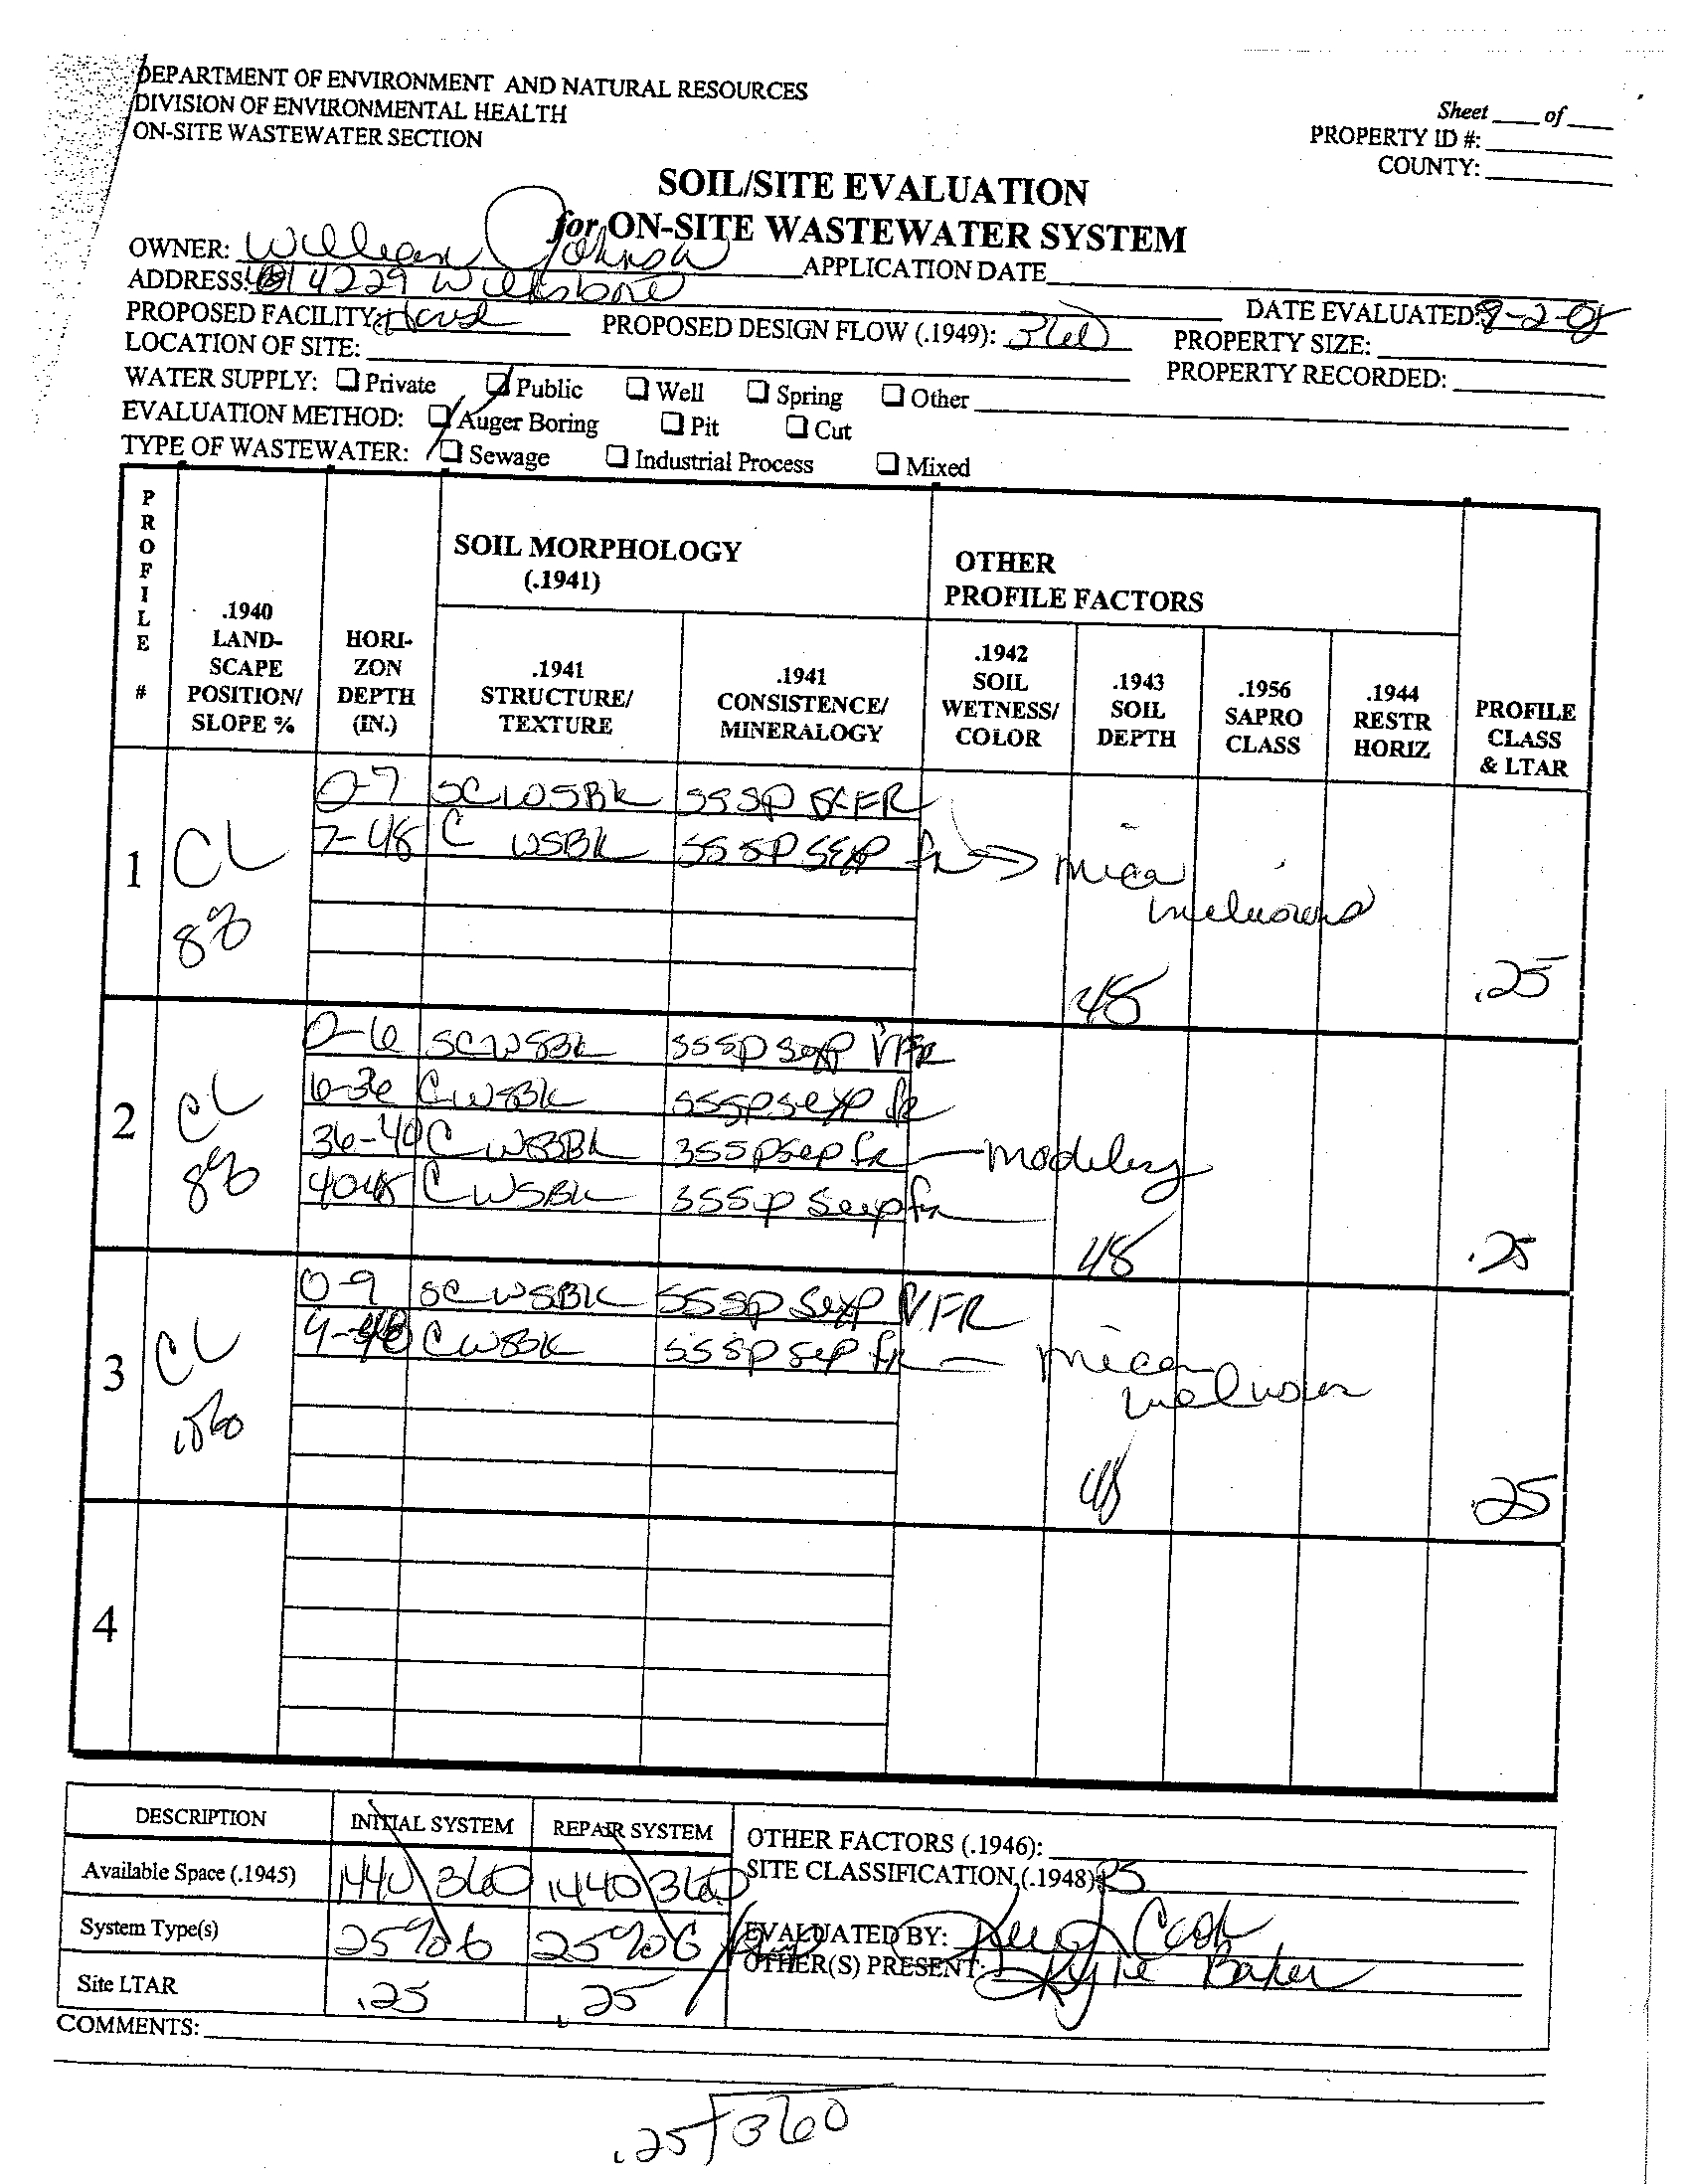 DEPARTMENT OF ENVIRONMENT AND NATURAL RESOURCES
DIVISION OF ENVIRONMENTAL HEALTH
ON-SITE WASTEWATER SECTION
Sheet ___ of ___
PROPERTY ID #:
COUNTY:
SOIL/SITE EVALUATION
for ON-SITE WASTEWATER SYSTEM
OWNER: William Johnson APPLICATION DATE
ADDRESS: 4229
DATE EVALUATED:
PROPOSED FACILITY: House PROPOSED DESIGN FLOW (.1949): 360 PROPERTY SIZE:
LOCATION OF SITE: PROPERTY RECORDED:
WATER SUPPLY: ❑ Private ❑ Public ❑ Well ❑ Spring ❑ Other
EVALUATION METHOD: ❑ Auger Boring ❑ Pit ❑ Cut
TYPE OF WASTEWATER: ❑ Sewage ❑ Industrial Process ❑ Mixed
PROFILE #
.1940 LAND-SCAPE POSITION/ SLOPE %
HORI-ZON DEPTH (IN.)
SOIL MORPHOLOGY (.1941)
.1941 STRUCTURE/ TEXTURE
.1941 CONSISTENCE/ MINERALOGY
OTHER PROFILE FACTORS
.1942 SOIL WETNESS/ COLOR
.1943 SOIL DEPTH
.1956 SAPRO CLASS
.1944 RESTR HORIZ
PROFILE CLASS & LTAR
1 CL 8%
0-7 SC WSBK SSSP FR
7-48 C WSBK SSSP SEXP fr → mica inclusions
48 .25
2 CL 8%
0-6 SC WSBK SSSP SEXP VFR
6-36 C WSBK SSSP SEXP fr
36-40 C WSBK SSSP SEP fr
40-48 C WSBK SSSP SEXP fr
48 .25
3 CL
0-9 SC WSBK SSSP SEXP VFR
9-48 C WSBK SSSP SEP fr — mica inclusion
48 .25
4
DESCRIPTION INITIAL SYSTEM REPAIR SYSTEM OTHER FACTORS (.1946):
Available Space (.1945) 1440 \ 360 1440 \ 360 SITE CLASSIFICATION (.1948) PS
System Type(s) 25% 25% EVALUATED BY: Cash
OTHER(S) PRESENT: Kyle Baker
Site LTAR .25 .25
COMMENTS:
.25 360